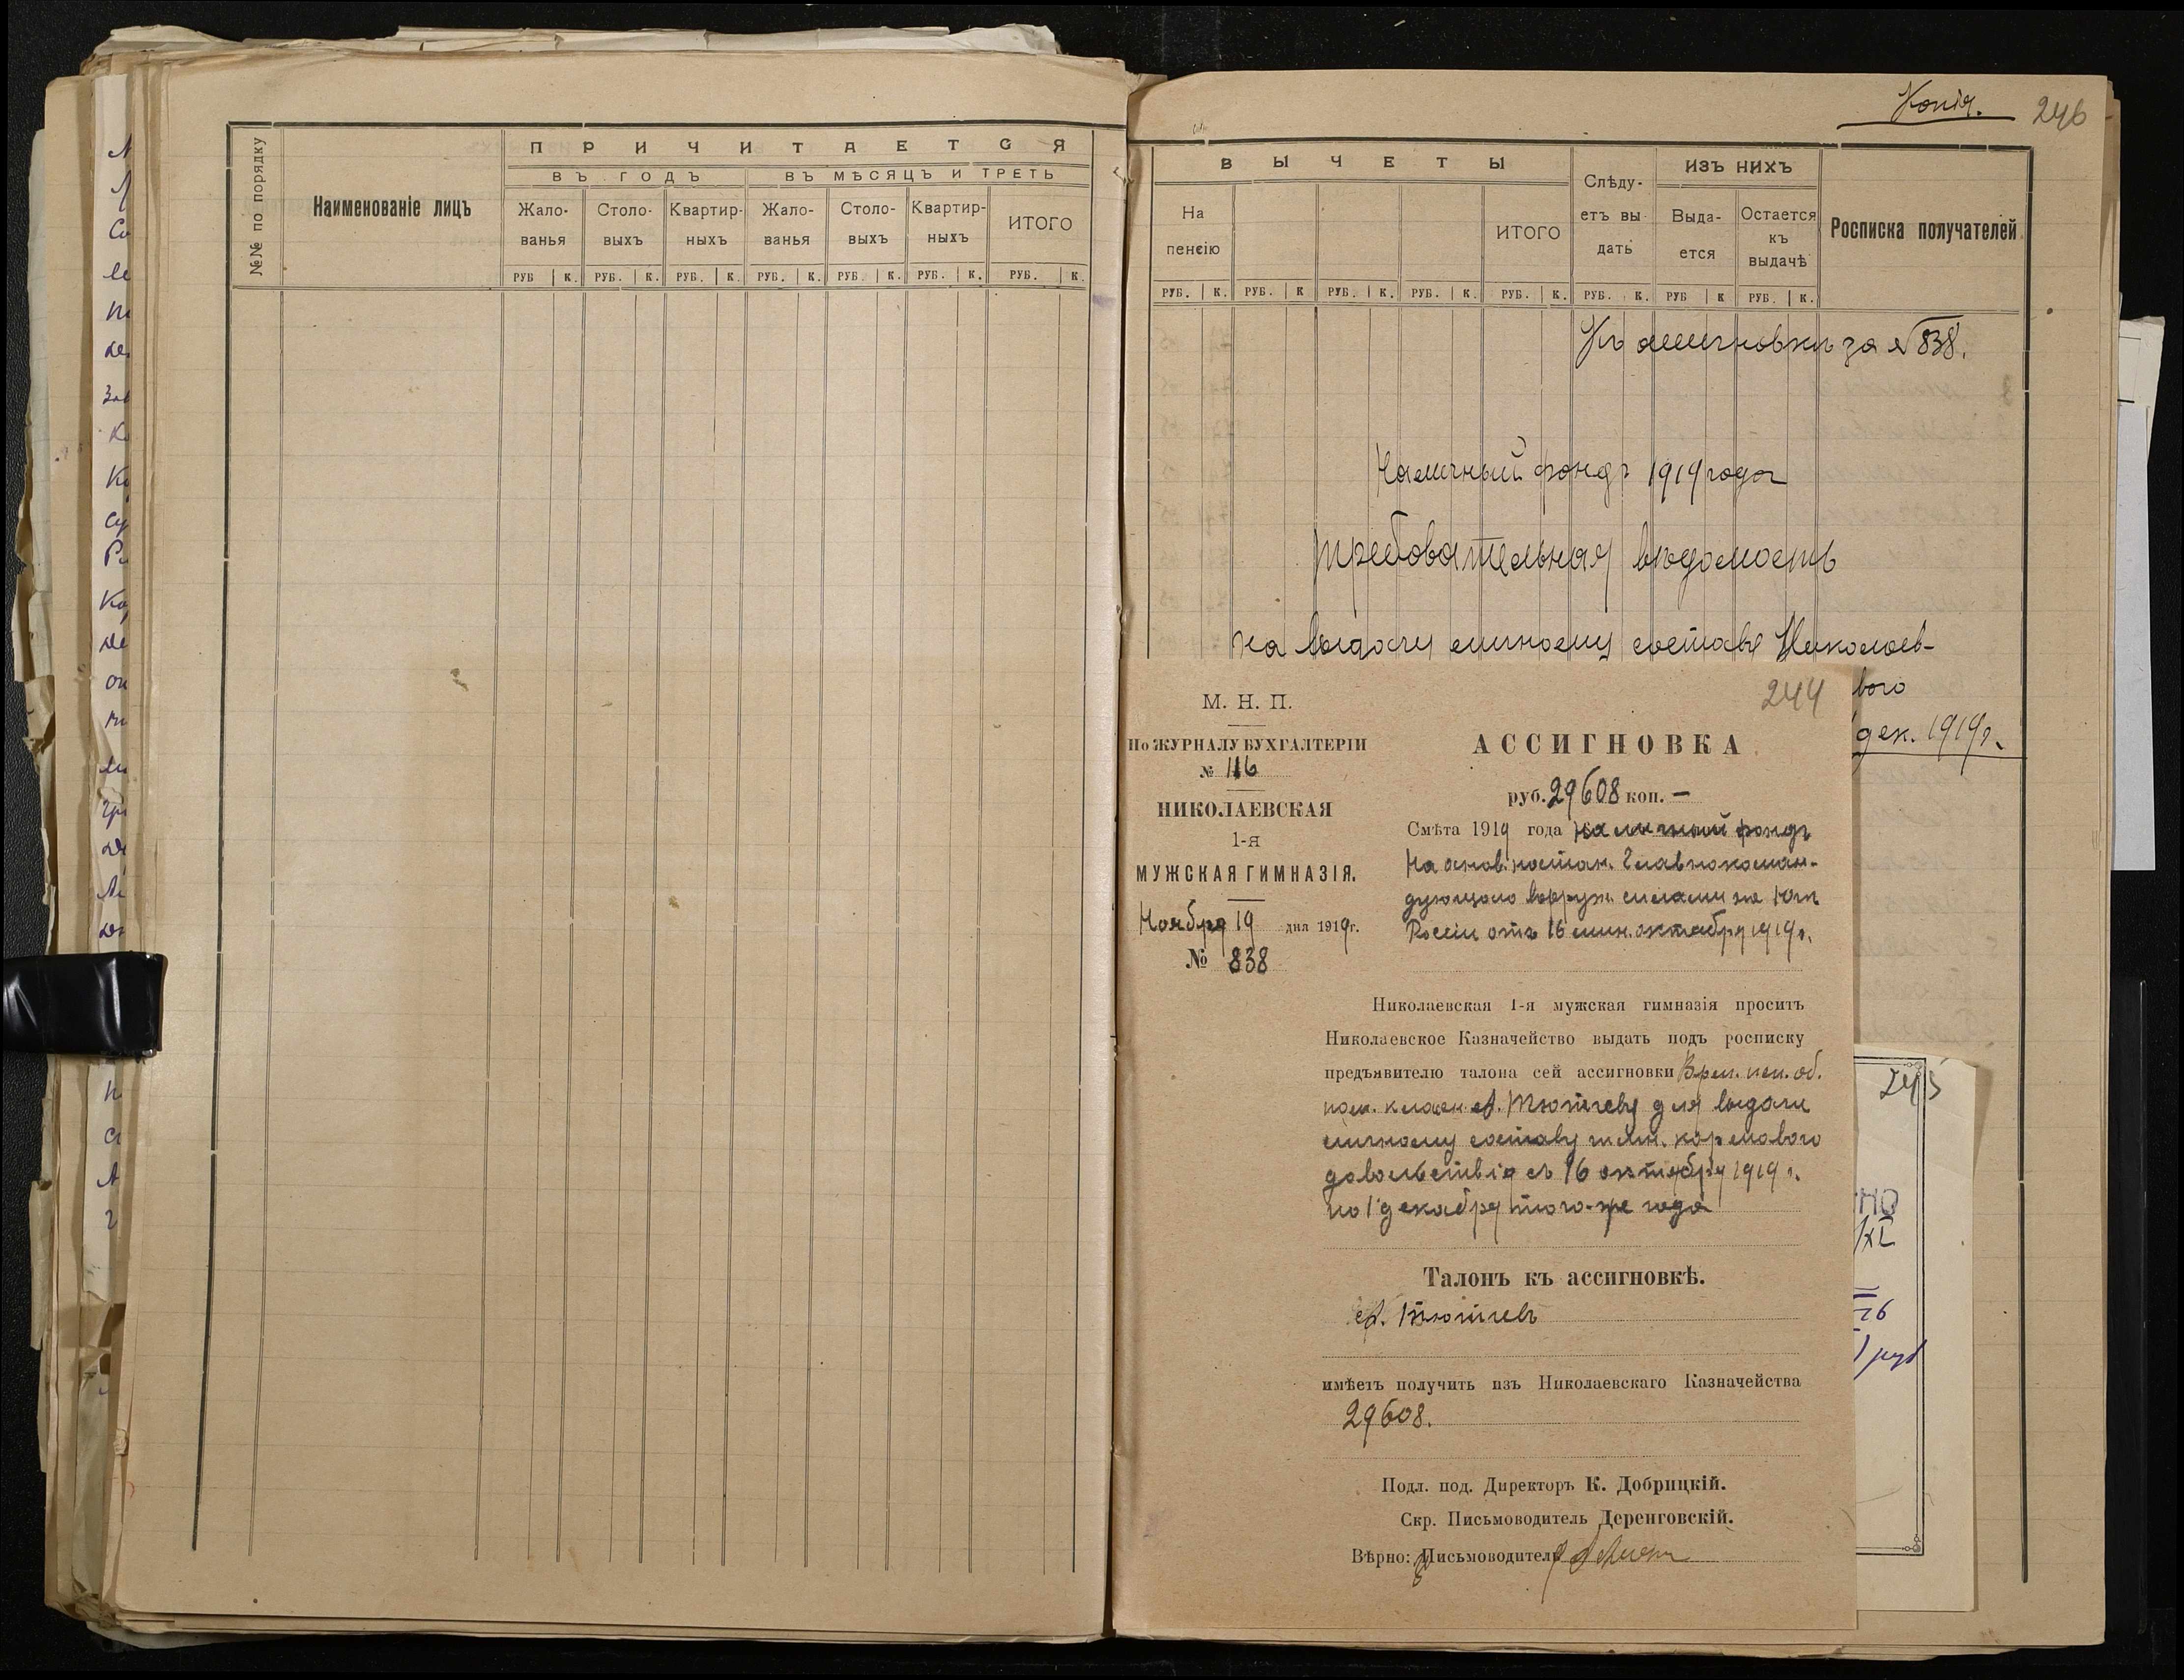 №№ по порядку
Наименованіе лицъ
ПРИЧИТАЕТСЯ
ВЪ ГОДЪ
ВЪ МѢСЯЦЪ И ТРЕТЬ
Жало-
ванья
Столо-
выхъ
Квартир-
ныхъ
Жало-
ванья
Столо-
выхъ
Квартир-
ныхъ
ИТОГО
РУБ К. РУБ. К. РУБ. К. РУБ. К. РУБ. К. РУБ. К. РУБ. К.
Копія. 246
ВЫЧЕТЫ
На
пенсію
ИТОГО
Слѣду-
етъ вы-
дать
ИЗЪ НИХЪ
Выда-
ется
Остается
къ
выдачѣ
Росписка получателей
РУБ. К. РУБ. К РУБ. К. РУБ. К. РУБ. К. РУБ. К. РУБ К РУБ. К.
Къ ассигновкѣ за № 838.
Наличный фондъ 1919 года
Требовательная вѣдомость
на выдачу личному составу Николаев-
вого
дек. 1919 г.
244
М. Н. П.
По ЖУРНАЛУ БУХГАЛТЕРІИ
№ 116
НИКОЛАЕВСКАЯ
1-я
МУЖСКАЯ ГИМНАЗІЯ.
Ноября 19 дня 1919г.
№ 838
АССИГНОВКА
руб. 29608 коп. —
Смѣта 1919 года наличный фондъ
На основ. постан. Главнокоман-
дующаго вооруж. силами на Югѣ
Россіи отъ 16 мин. октября 1919 г.
Николаевская 1-я мужская гимназія проситъ
Николаевское Казначейство выдать подъ росписку
предъявителю талона сей ассигновки Врем. исп. об.
пом. класн. А. Тютчеву для выдачи
личному составу гимн. кормового
довольствія съ 16 октября 1919 г.
по 1 декабря того-же года
Талонъ къ ассигновкѣ.
А. Тютчевъ
имѣетъ получить изъ Николаевскаго Казначейства
29608.
Подл. под. Директоръ К. Добрицкій.
Скр. Письмоводитель Деренговскій.
Вѣрно: Письмоводитель
245
НО
/XI
26
руб